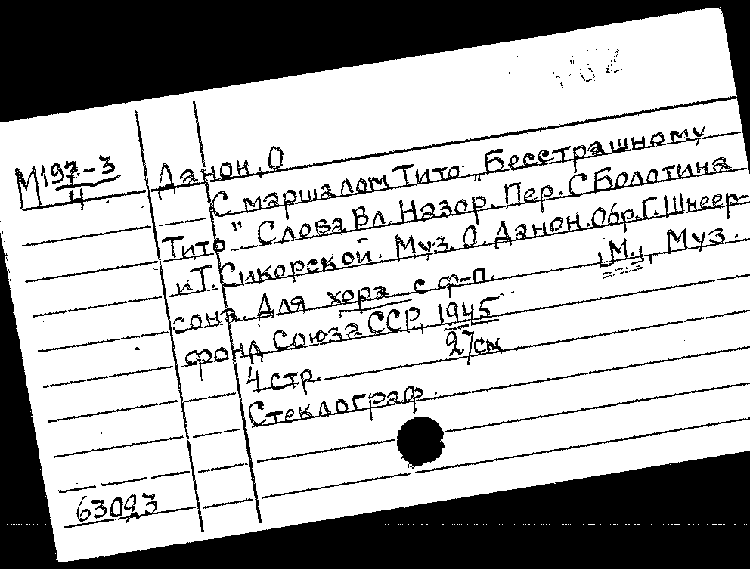 М197-3
4
Данон, О
С маршалом Тито „Бесстрашному
Тито" Слова Вл. Назор. Пер. С Болотина
и Т. Сикорской. Муз. О. Данон. Обр. Г. Шнеер-
сона. Для хора с ф-п. М., Муз.
фонд Союза ССР, 1945
4 стр. 27 см
Стеклограф.
63093